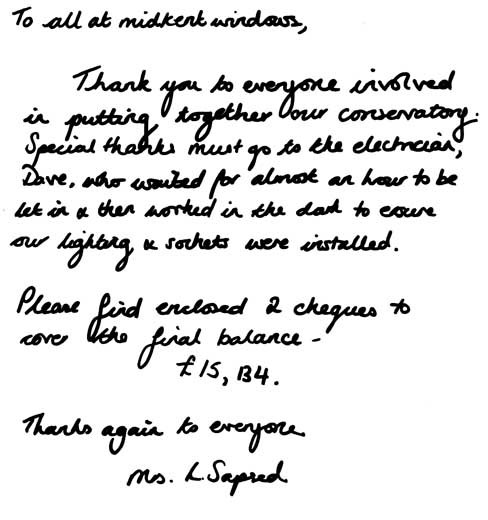 To all at midkent windows,
Thank you to everyone involved
in putting together our conservatory.
Special thanks must go to the electrician,
Dave, who waited for almost an hour to be
let in & then worked in the dark to ensure
our lighting & sockets were installed.
Please find enclosed 2 cheques to
cover the final balance -
£15,134.
Thanks again to everyone.
Ms. L. Sapsed